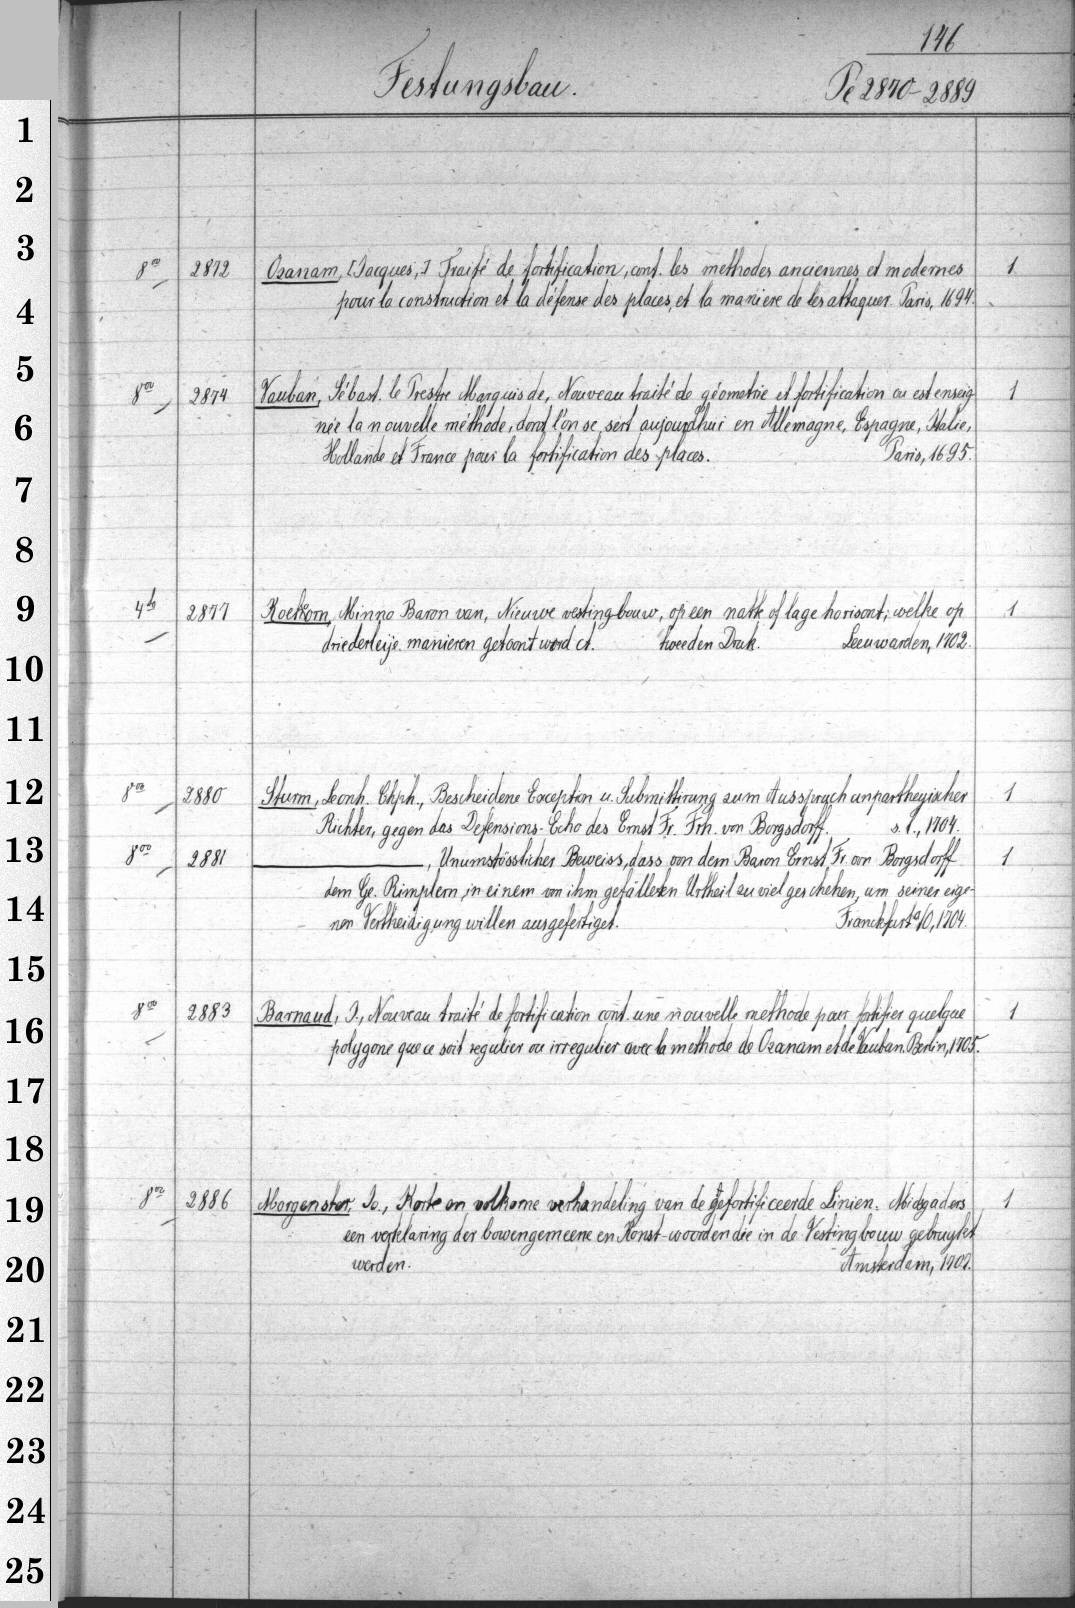 146
Festungsbau. Pe 2870-2889
1
2
3
8vo 2872 Ozanam, [Jacques,] Traité de fortification, cont. les methodes anciennes et modernes 1
pour la construction et la défense des places, et la maniere de les attaquer. Paris, 1694.
4
5
8vo 2874 Vauban, Sébast. le Prestre Marquis de, Nouveau traité de géometrie et fortification ou est enseig- 1
6
née la nouvelle méthode, dont l'on se sert aujourdhui en Allemagne, Espagne, Italie,
Hollande et France pour la fortification des places. Paris, 1695.
7
8
9
4to 2877 Koehorn, Minno Baron van, Nieuwe vestingbouw, op een natte of lage horisont; welke op 1
driederleije manieren getoont word ct. tweeden Druk. Leeuwarden, 1702.
10
11
12
8vo 2880 Sturm, Leonh. Chph., Bescheidene Exception u. Submittirung zum Ausspruch unpartheyischer 1
Richter, gegen das Defensions-Echo des Ernst Fr. Frh. von Borgsdorff. s. l., 1704.
13
8vo 2881 ———, Unumstösslicher Beweiss, dass von dem Baron Ernst Fr. von Borgsdorff 1
dem Ge. Rimplern, in einem von ihm gefälleten Urtheil zu viel geschehen, um seiner eige-
14
nen Vertheidigung willen ausgefertiget. Franckfurt a/O, 1704.
15
8vo 2883 Barnaud, J., Nouveau traité de fortification cont. une nouvelle methode pour fortifier quelque 1
16
polygone que ce soit regulier ou irregulier avec la methode de Ozanam et de Vauban. Berlin, 1705.
17
18
8vo 2886 Morgenster, Jo., Korte en volkome verhandeling van de gefortificeerde Linien. Midsgaders 1
19
een verklaring der bowengemeene en Konst-woorden die in de Vestingbouw gebruyket
20
werden. Amsterdam, 1707.
21
22
23
24
25